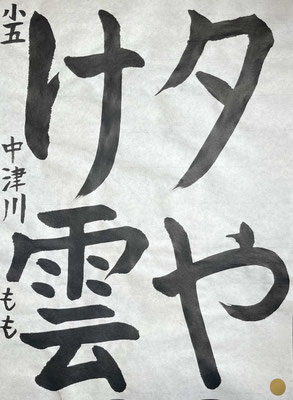 夕や
け雲
小五 中津川 もも